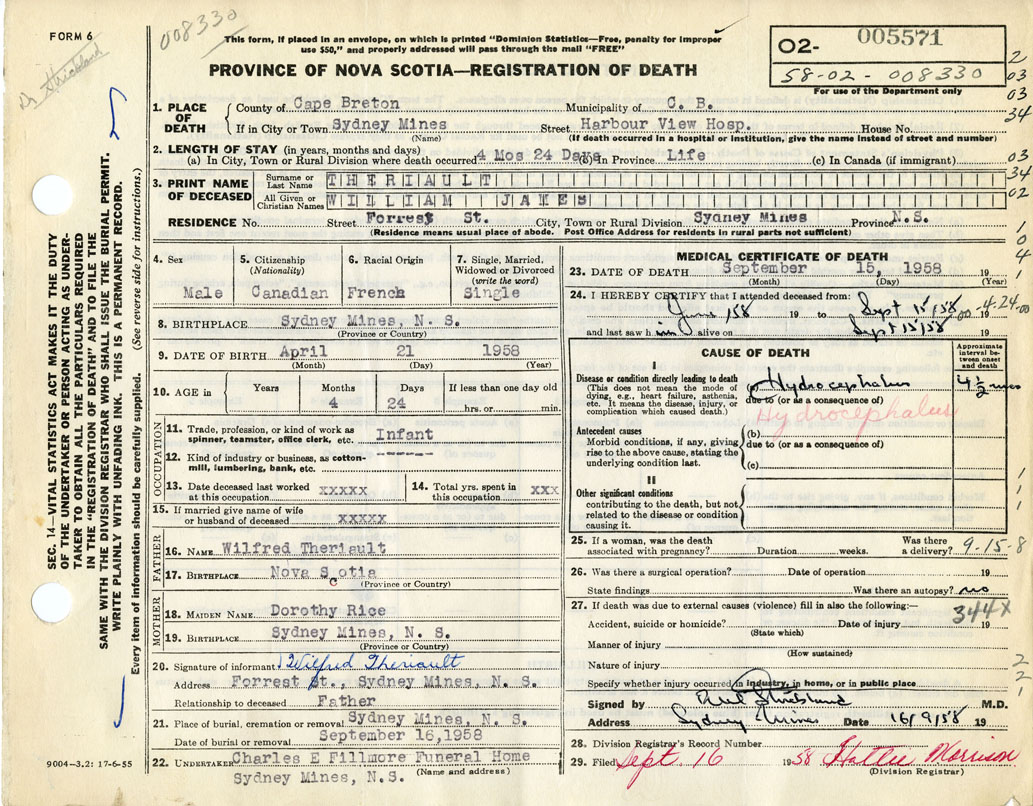 FORM 6
008330
Dr Strickland
This form, if placed in an envelope, on which is printed "Dominion Statistics—Free, penalty for improper
use $50," and properly addressed will pass through the mail "FREE"
PROVINCE OF NOVA SCOTIA—REGISTRATION OF DEATH
02- 005571
58-02-008330
For use of the Department only
2
03
03
34
03
34
02
1
0
4
1
SEC. 14—VITAL STATISTICS ACT MAKES IT THE DUTY
OF THE UNDERTAKER OR PERSON ACTING AS UNDER-
TAKER TO OBTAIN ALL THE PARTICULARS REQUIRED
IN THE "REGISTRATION OF DEATH" AND TO FILE THE
SAME WITH THE DIVISION REGISTRAR WHO SHALL ISSUE THE BURIAL PERMIT.
WRITE PLAINLY WITH UNFADING INK. THIS IS A PERMANENT RECORD.
Every item of information should be carefully supplied. (See reverse side for instructions.)
1. PLACE OF DEATH
County of Cape Breton Municipality of C. B.
If in City or Town Sydney Mines Street Harbour View Hosp. House No.
(Name) (If death occurred in a hospital or institution, give the name instead of street and number)
2. LENGTH OF STAY (in years, months and days)
(a) In City, Town or Rural Division where death occurred 4 Mos 24 Days (b) in Province Life (c) In Canada (if immigrant)
3. PRINT NAME OF DECEASED
Surname or Last Name THERIAULT
All Given or Christian Names WILLIAM JAMES
RESIDENCE No. Street Forrest St. City, Town or Rural Division Sydney Mines Province N.S.
(Residence means usual place of abode. Post Office Address for residents in rural parts not sufficient)
4. Sex
Male
5. Citizenship
(Nationality)
Canadian
6. Racial Origin
French
7. Single, Married, Widowed or Divorced
(write the word)
Single
8. BIRTHPLACE Sydney Mines, N. S.
(Province or Country)
9. DATE OF BIRTH April 21 1958
(Month) (Day) (Year)
10. AGE in Years Months Days If less than one day old
4 24 hrs. or min.
OCCUPATION
11. Trade, profession, or kind of work as
spinner, teamster, office clerk, etc. Infant
12. Kind of industry or business, as cotton-
mill, lumbering, bank, etc. ------
13. Date deceased last worked
at this occupation xxxxx
14. Total yrs. spent in
this occupation xxx
15. If married give name of wife
or husband of deceased xxxxx
FATHER
16. NAME Wilfred Theriault
17. BIRTHPLACE Nova Scotia
(Province or Country)
MOTHER
18. MAIDEN NAME Dorothy Rice
19. BIRTHPLACE Sydney Mines, N. S.
(Province or Country)
20. Signature of informant Wilfred Theriault
Address Forrest St., Sydney Mines, N. S.
Relationship to deceased Father
21. Place of burial, cremation or removal Sydney Mines, N. S.
Date of burial or removal September 16,1958
22. UNDERTAKER Charles E Fillmore Funeral Home
Sydney Mines, N.S. (Name and address)
9004—3.2: 17-6-55
MEDICAL CERTIFICATE OF DEATH
23. DATE OF DEATH September 15, 1958 19
(Month) (Day) (Year)
24. I HEREBY CERTIFY that I attended deceased from:
June '58 19 to Sept 15/58 19
00-4-24-00
and last saw him alive on Sept 15/58 19
CAUSE OF DEATH
Approximate interval between onset and death
I
Disease or condition directly leading to death
(This does not mean the mode of
dying, e.g., heart failure, asthenia,
etc. It means the disease, injury, or
complication which caused death.)
(a) Hydrocephalus 4½ mos
due to (or as a consequence of)
Hydrocephalus
Antecedent causes
Morbid conditions, if any, giving
rise to the above cause, stating the
underlying condition last.
(b)
due to (or as a consequence of)
(c)
II
Other significant conditions
contributing to the death, but not
related to the disease or condition
causing it.
1
1
1
25. If a woman, was the death
associated with pregnancy? Duration weeks. Was there a delivery?
9-15-8
26. Was there a surgical operation? Date of operation 19
State findings Was there an autopsy? no
27. If death was due to external causes (violence) fill in also the following:—
344X
Accident, suicide or homicide? Date of injury 19
(State which)
Manner of injury
(How sustained)
Nature of injury
Specify whether injury occurred in industry, in home, or in public place
2
2
1
Signed by Strickland M.D.
Address Sydney Mines Date 16/9/58 19
28. Division Registrar's Record Number
29. Filed Sept. 16 1958 Hattie Morrison
(Division Registrar)